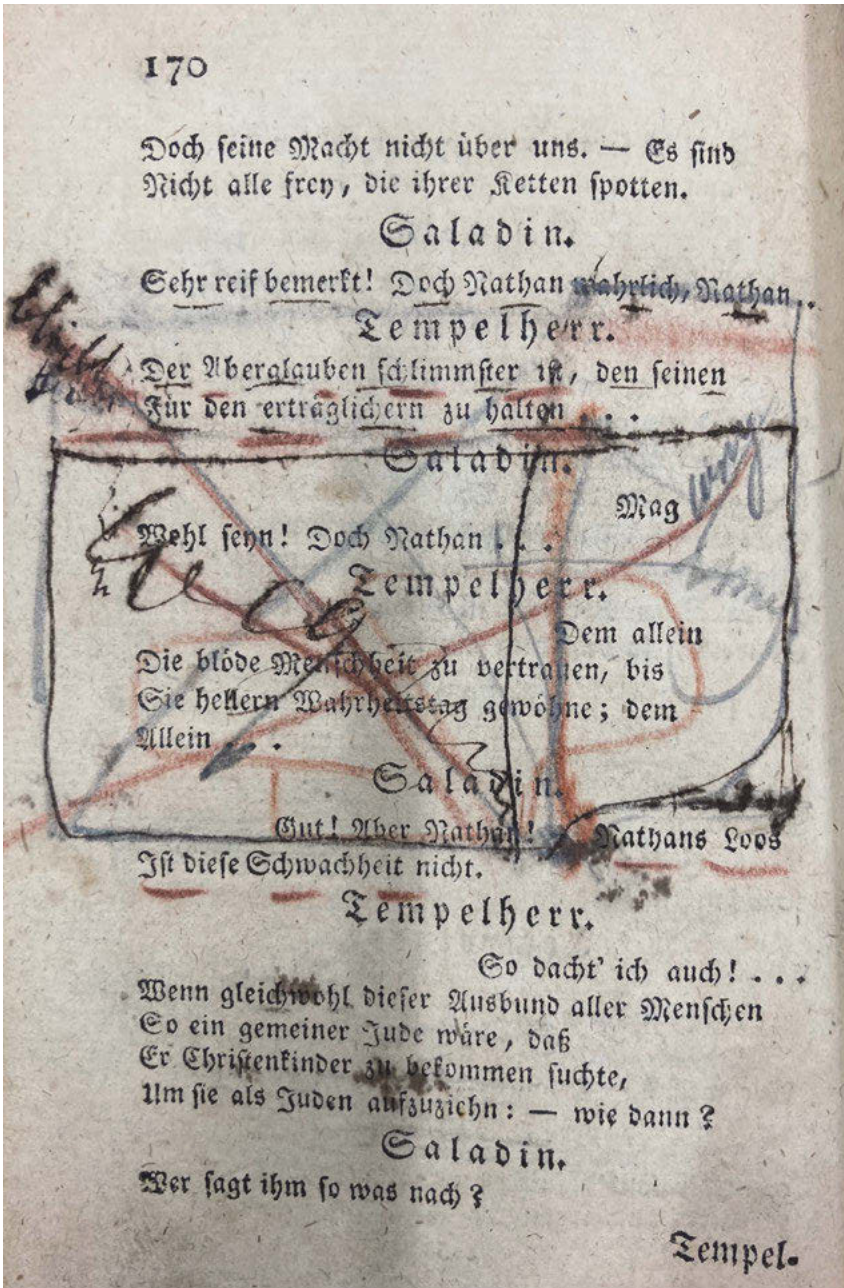 170
Doch seine Macht nicht über uns. — Es sind
Nicht alle frey, die ihrer Ketten spotten.
Saladin.
Sehr reif bemerkt! Doch Nathan wahrlich, Nathan . .
Tempelherr.
Der Aberglauben schlimmster ist, den seinen
Für den erträglichern zu halten . . .
Saladin.
Mag
Wohl seyn! Doch Nathan . . .
Tempelherr.
Dem allein
Die blöde Menschheit zu vertrauen, bis
Sie hellern Wahrheitstag gewöhne; dem
Allein . . .
Saladin.
Gut! Aber Nathan! Nathans Loos
Ist diese Schwachheit nicht.
Tempelherr.
So dacht' ich auch! . . .
Wenn gleichwohl dieser Ausbund aller Menschen
So ein gemeiner Jude wäre, daß
Er Christenkinder zu bekommen suchte,
Um sie als Juden aufzuziehn: — wie dann?
Saladin.
Wer sagt ihm so was nach?
Tempel-